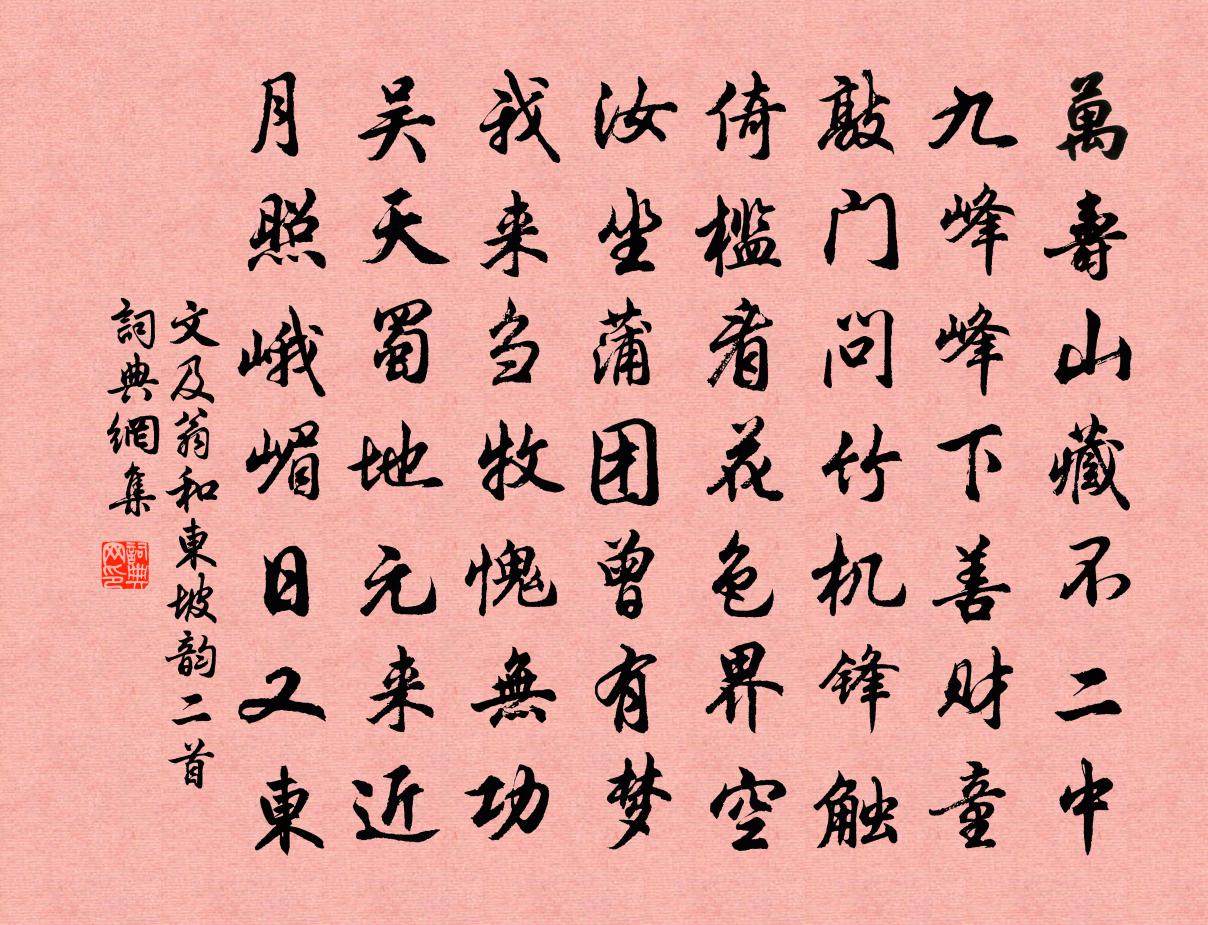 萬壽山藏不二中
九峰峰下善财童
敲门问竹机锋触
倚槛看花色界空
汝坐蒲团曾有梦
我来刍牧愧無功
吴天蜀地元来近
月照峨嵋日又東
文及翁和東坡韵二首
詞典網集
詞典网印